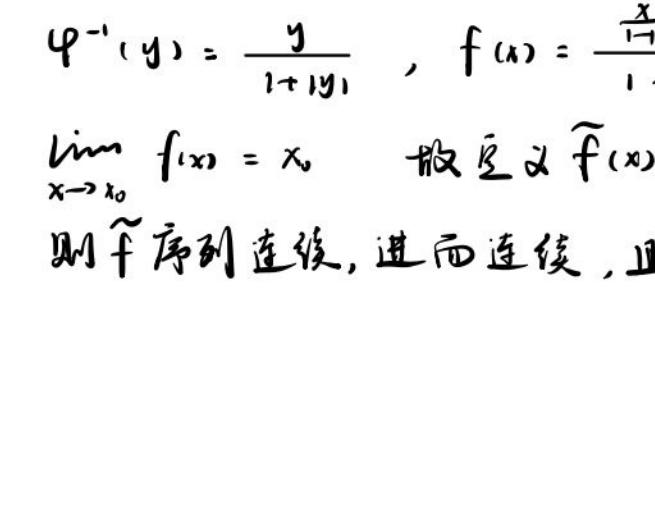 φ⁻¹(y) = y / (1+|y|) , f(x) =
lim_{x→x₀} f(x) = x₀ 故定义 f̃(x)
则 f̃ 序列连续, 进而连续, 且